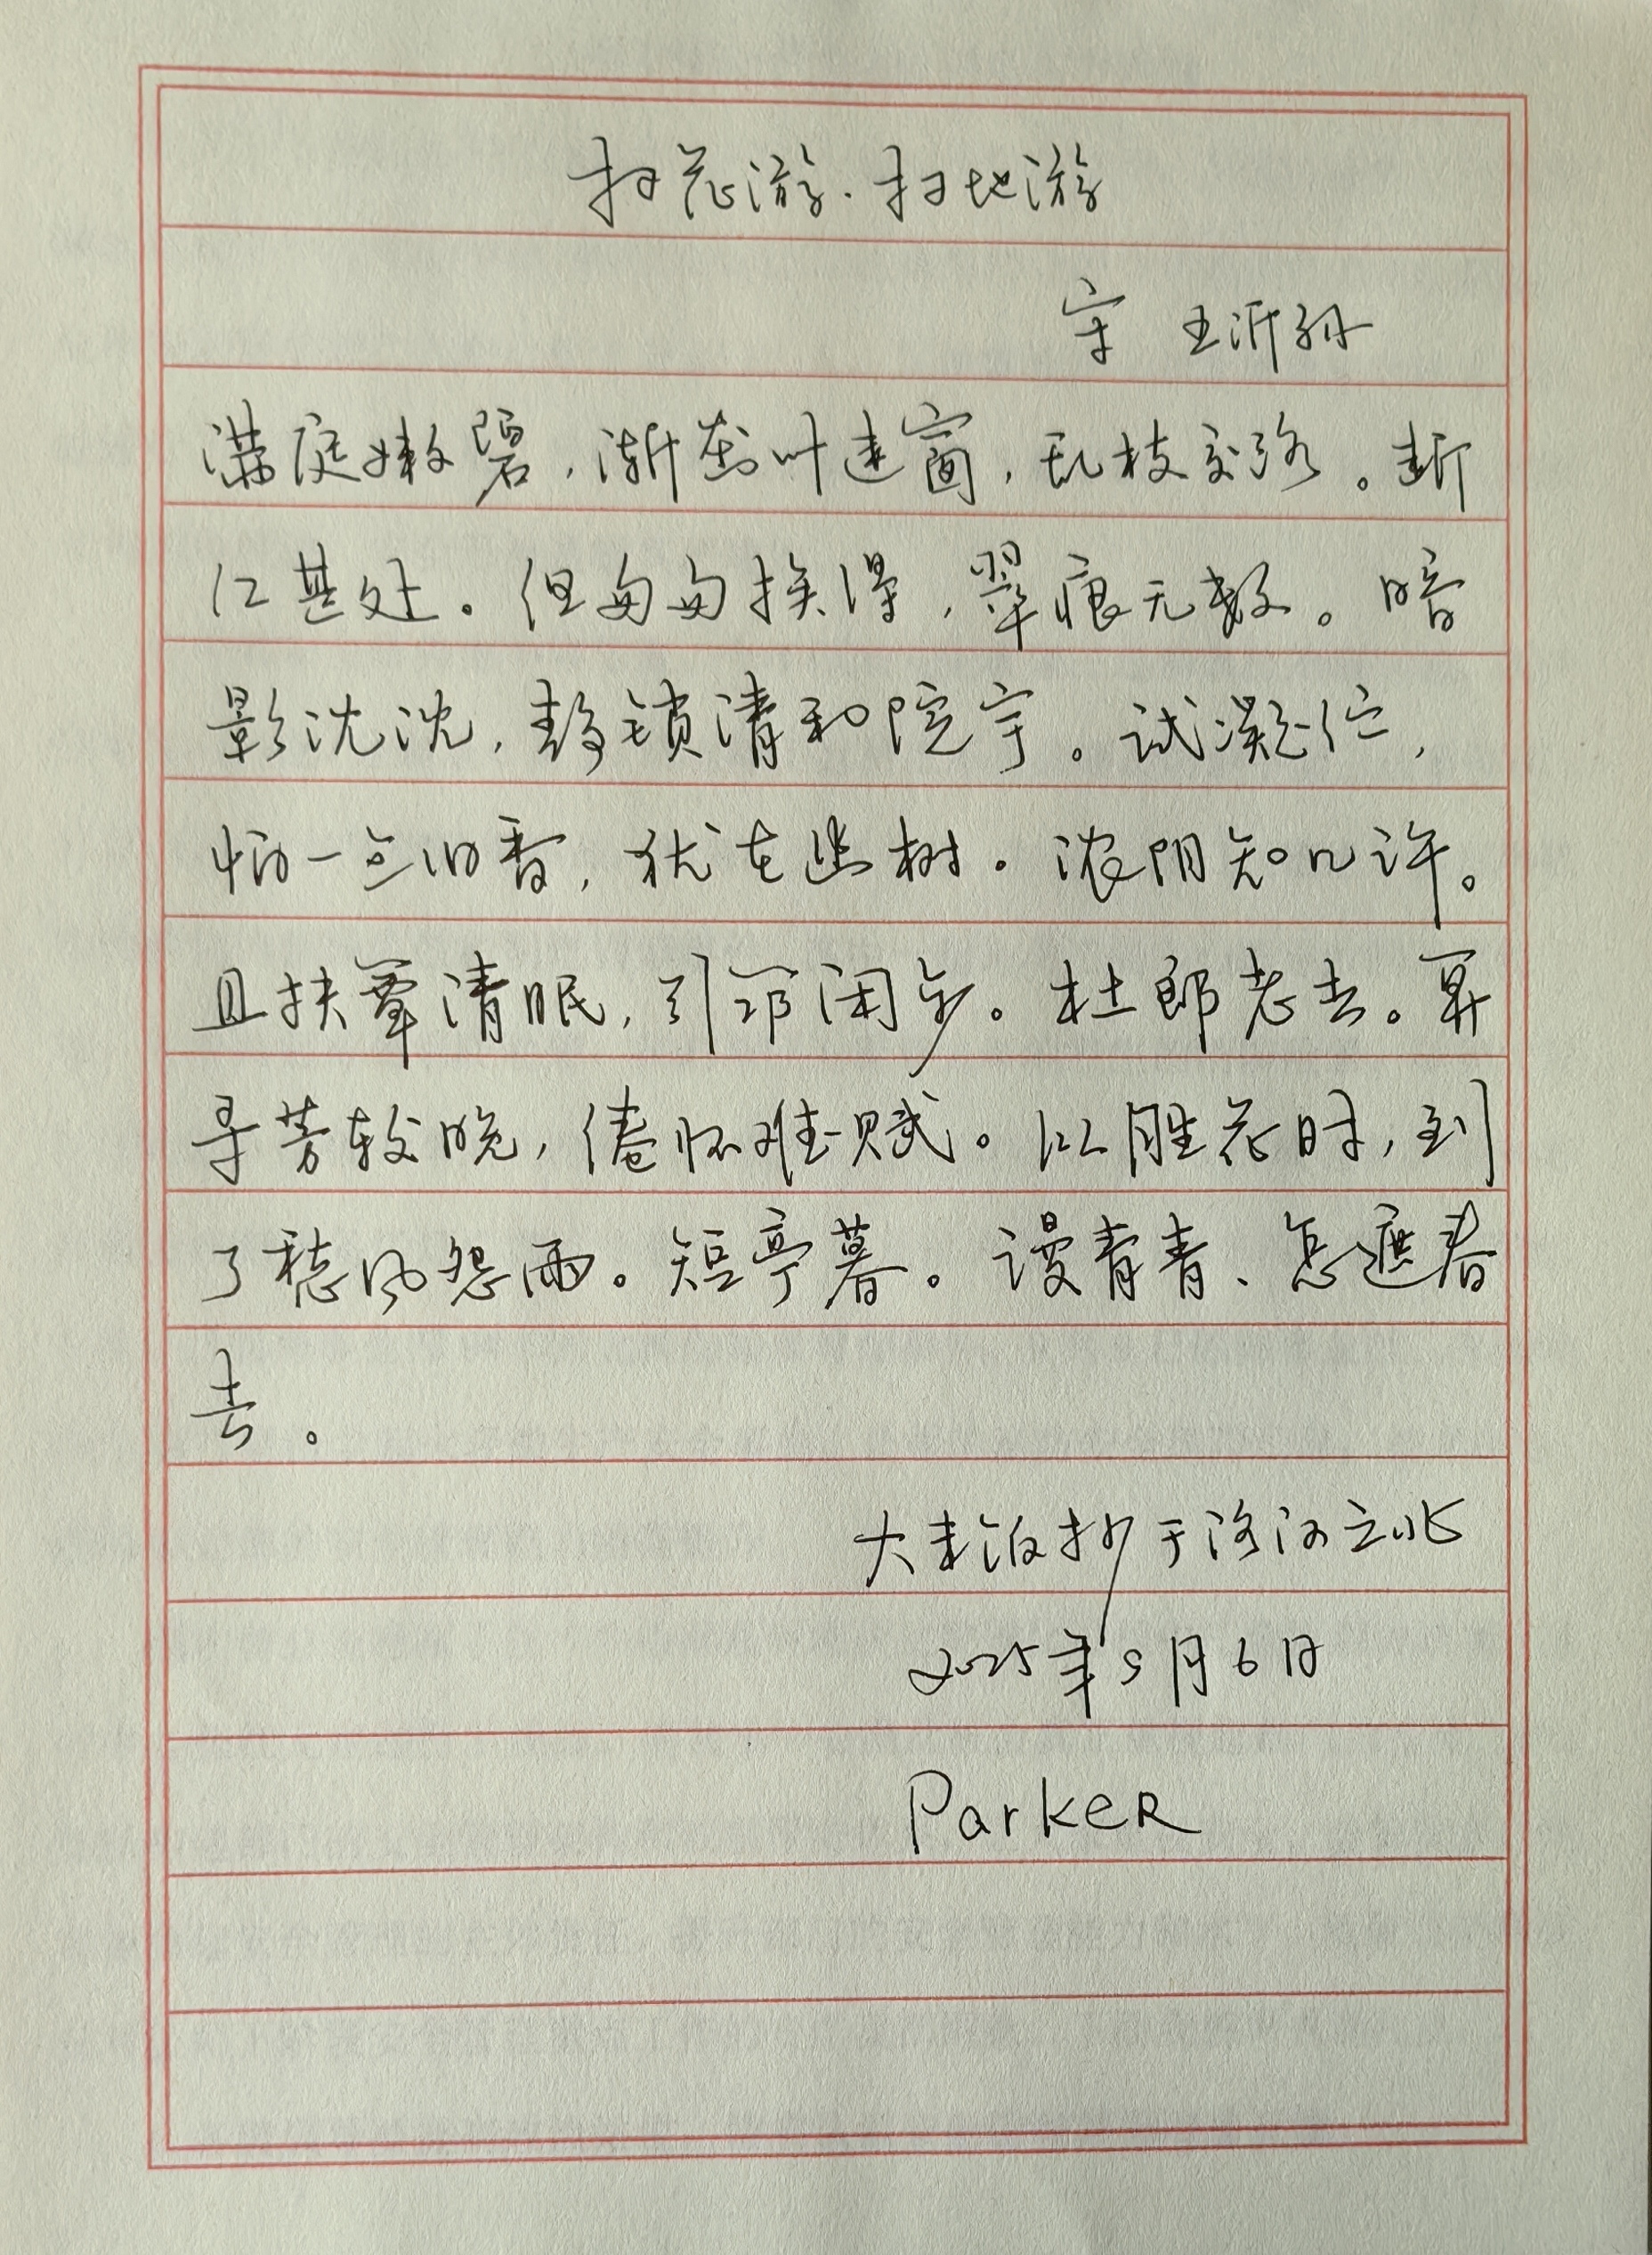 扫花游·扫地游
宋 王沂孙
满庭嫩碧，渐密叶迷窗，乱枝交路。断
红甚处。但匆匆换得，翠痕无数。暗
影沈沈，静锁清和院宇。试凝伫，
怕一点旧香，犹在幽树。浓阴知几许。
且拂簟清眠，引筇闲步。杜郎老去。算
寻芳较晚，倦怀难赋。纵胜花时，到
了愁风怨雨。短亭暮。谩青青、怎遮春
去。
大米饭抄于洛河之北
2025年9月6日
Parker